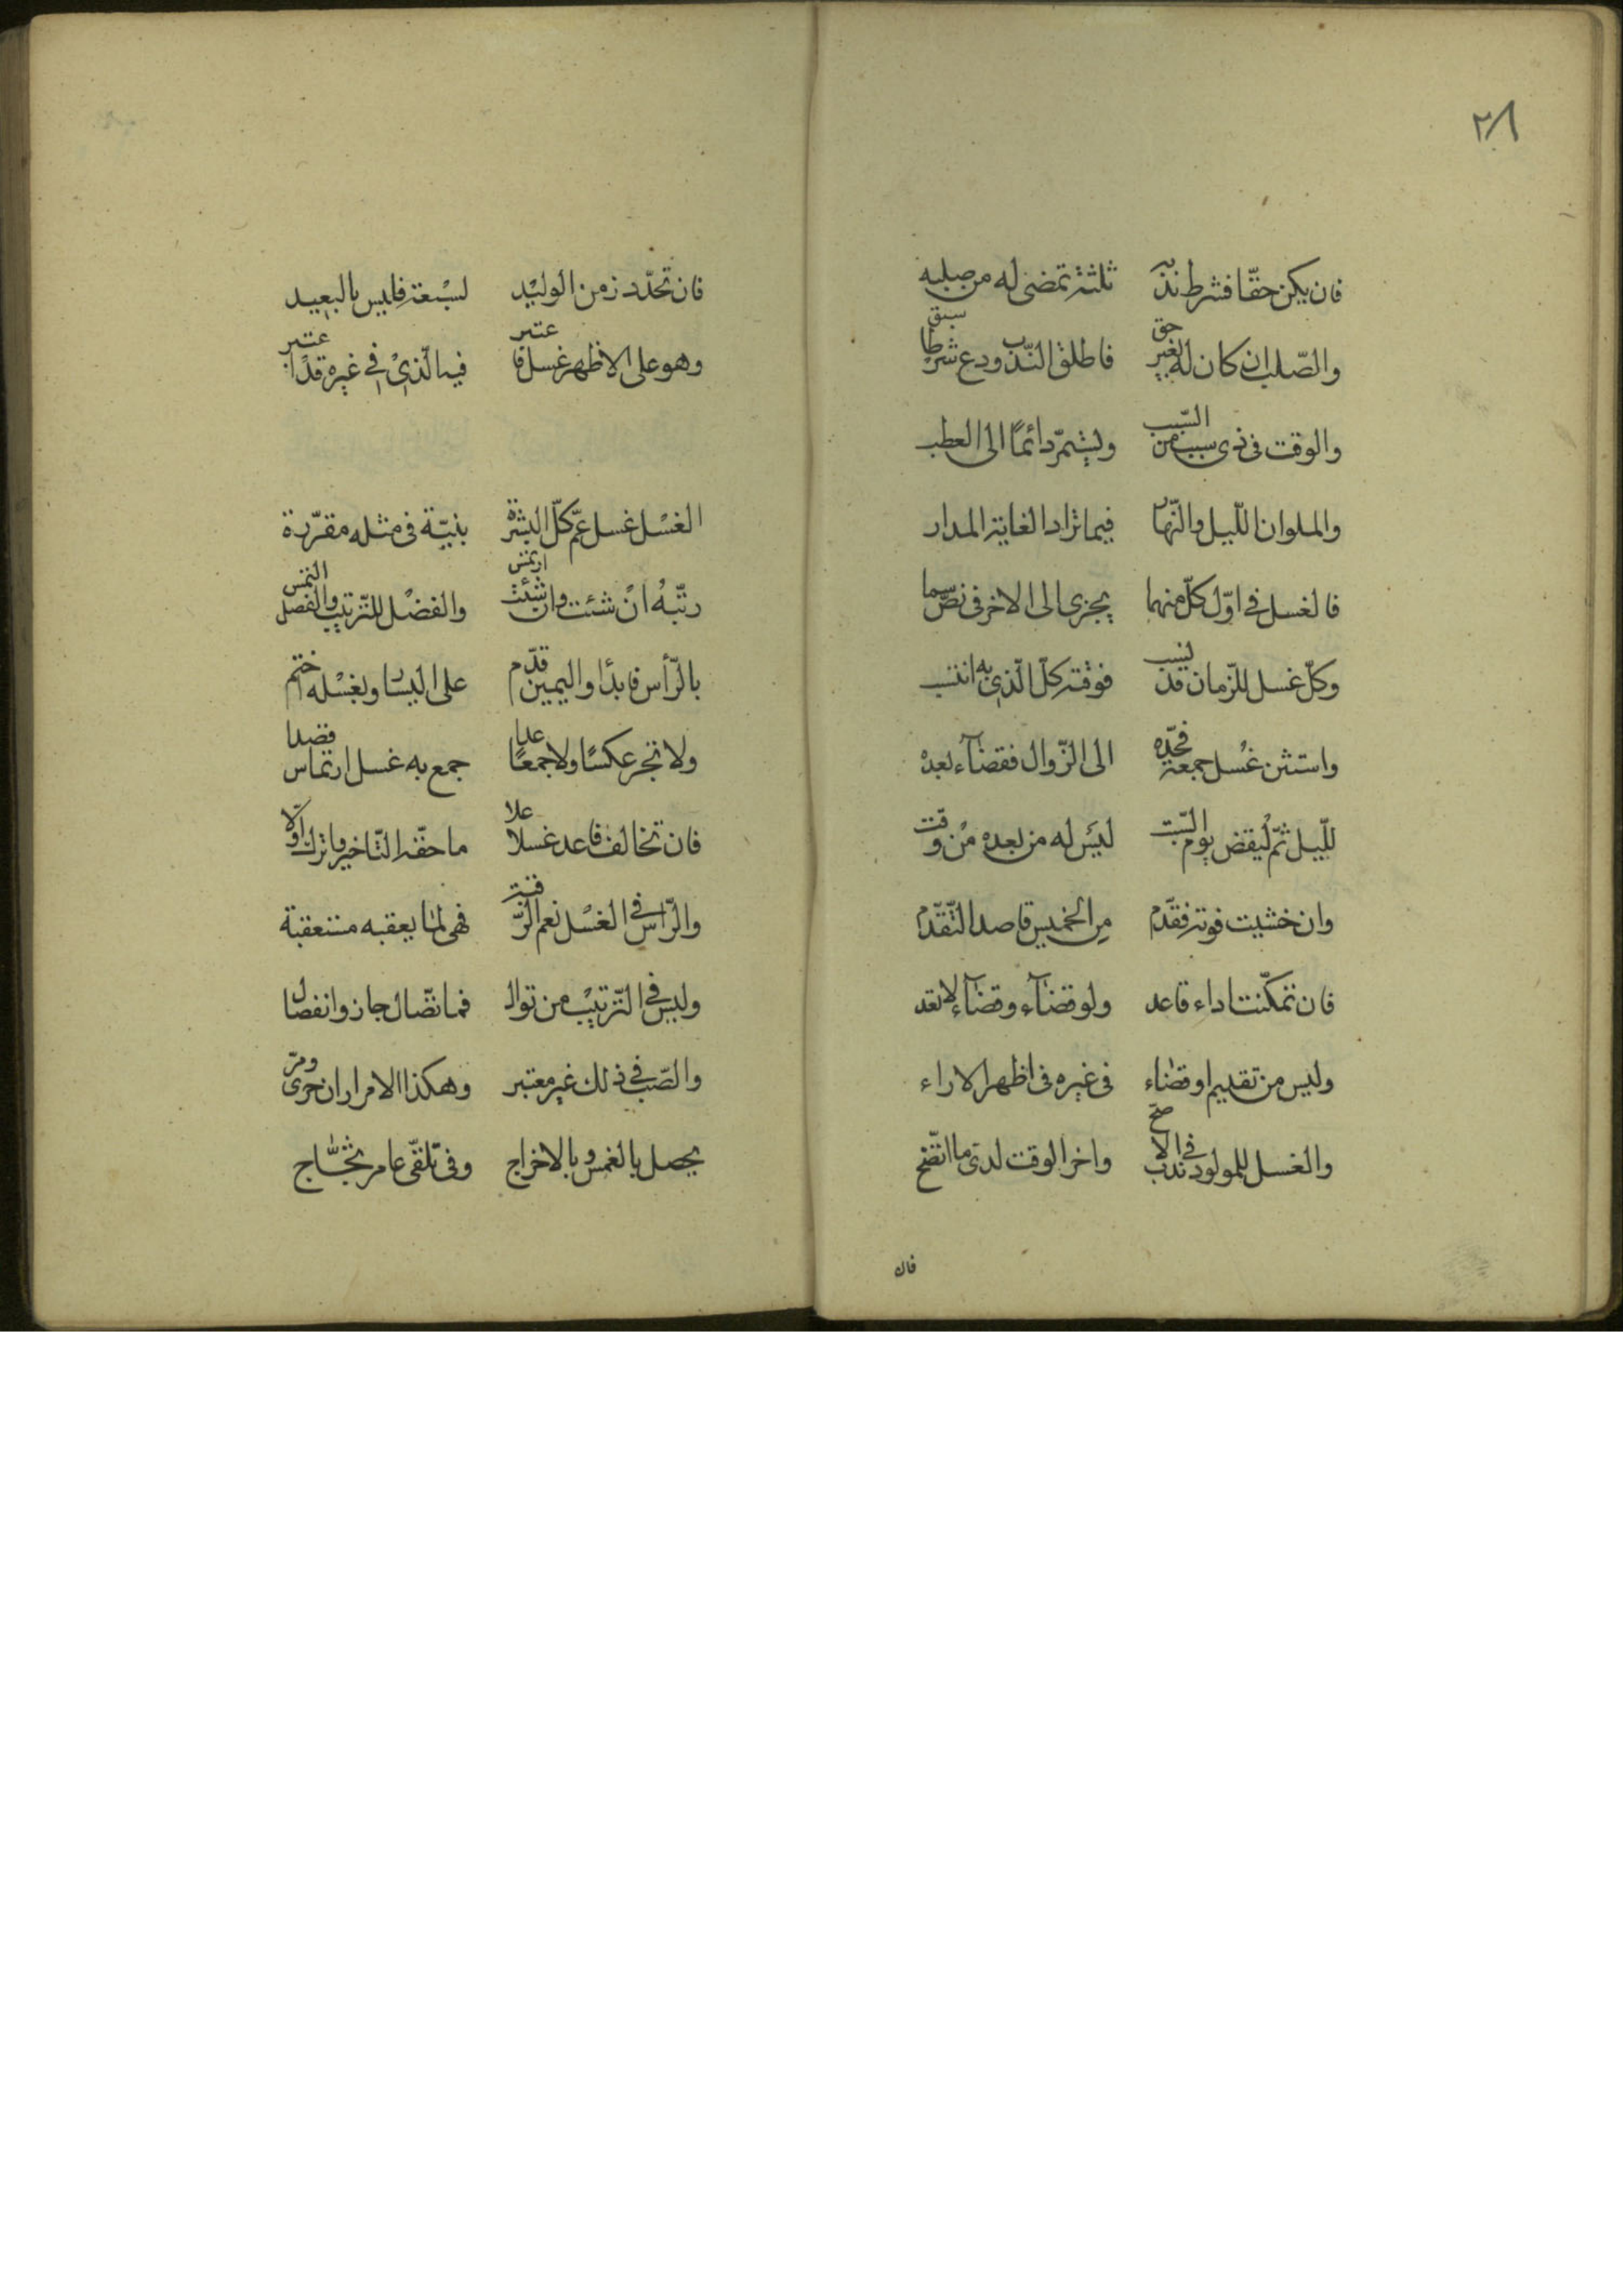 ٢٨
فان يكن حقّا فشرط ندبه ثلثة تمضى له من صلبه
والصّلب ان كان لغير حق فاطلق النّدب ودع شرطا سبق
والوقت فى ذى سبب من السّبب ويستمرّ دائمًا الى العطب
والملوان اللّيل والنّهار فيما تراد الغاية المدار
فالغسل فى اوّل كلّ منهما يجزى الى الاخر فى نصّ سما
وكلّ غسل للزّمان قد نسب فوقته كلّ الّذى به انتسب
واستثن غسل جمعة فحدّه الى الزّوال فقضآء بعده
للّيل ثمّ ليقض يوم السّبت ليس له من بعده من وقت
وان خشيت فوته فقدّم من الخميس قاصد التّقدّم
فان تمكّنت اداء فاعد ولو قضآء وقضآء لا تعد
وليس من تقديم او قضاء فى غيره فى اظهر الاراء
والغسل للمولود ندب فى الاصحّ واخر الوقت لدى ما اتّضح
فان
فان تحدّد زمن الوليد لسبعة فليس بالبعيد
وهو على الاظهر غسل فاعتبر فيه الّذى فى غيره قد اعتبر
الغسل غسل عمّ كلّ البشرة بنيّة فى مثله مقرّرة
رتّبه ان شئت وان شئت ارتمس والفضل للتّرتيب والفصل التمس
بالرّأس فابدأ واليمين قدّم على اليسار وبغسله اختم
ولا تجز عكسًا ولا جمعًا عدا جمع به غسل ارتماس قصدا
فان تخالف فاعد غسلا علا ما حقّه التّاخير واترك اوّلا
والرّاس فى الغسل نعم الرّقبة فهى لما يعقبه مستعقبة
وليس فى التّرتيب من توال فما تّصال جاز وانفصال
والصّب فى ذلك غير معتبر وهكذا الامرار ان جرى ومرّ
يحصل بالغمس وبالاخراج وفى تلقّى عامر ثجّاج